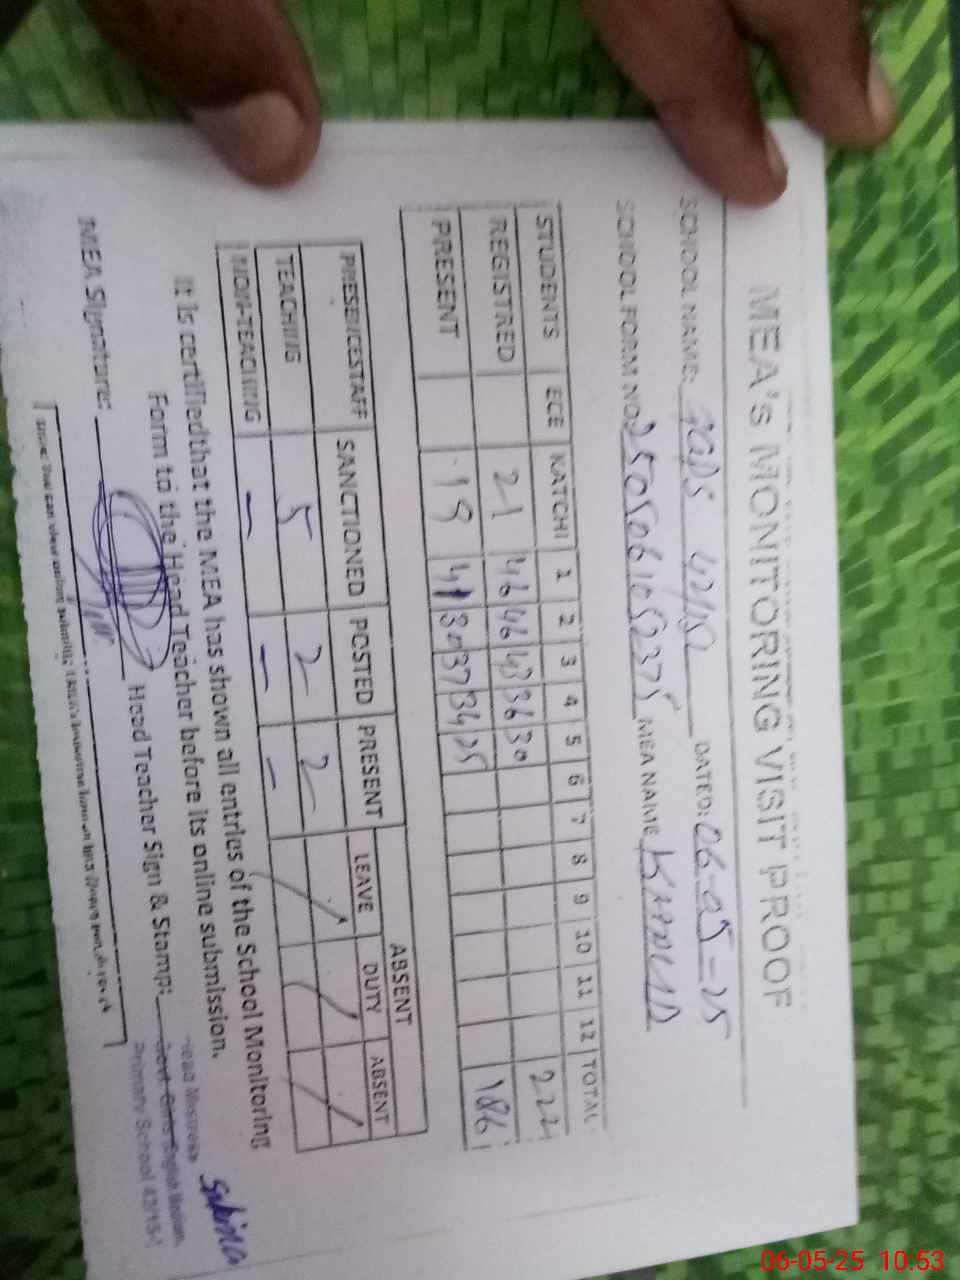 MEA's MONITORING VISIT PROOF
SCHOOL NAME: DATED: 06-05-25
SCHOOL FORM NO: MEA NAME
STUDENTS ECE KATCHI 1 2 3 4 5 6 7 8 9 10 11 12 TOTAL
REGISTRED 21 46 46 43 36 30 222
PRESENT 19 41 30 37 34 25 186
ABSENT
PRESENCESTAFF SANCTIONED POSTED PRESENT LEAVE DUTY ABSENT
TEACHING 5 2 2 / / /
NON-TEACHING - - -
It is certified that the MEA has shown all entries of the School Monitoring
Form to the Head Teacher before its online submission.
MEA Signature: Head Teacher Sign & Stamp:
Head Mistress
Govt. Girls English Medium
Primary School 42/15-L
Sakina
06-05-25 10:53